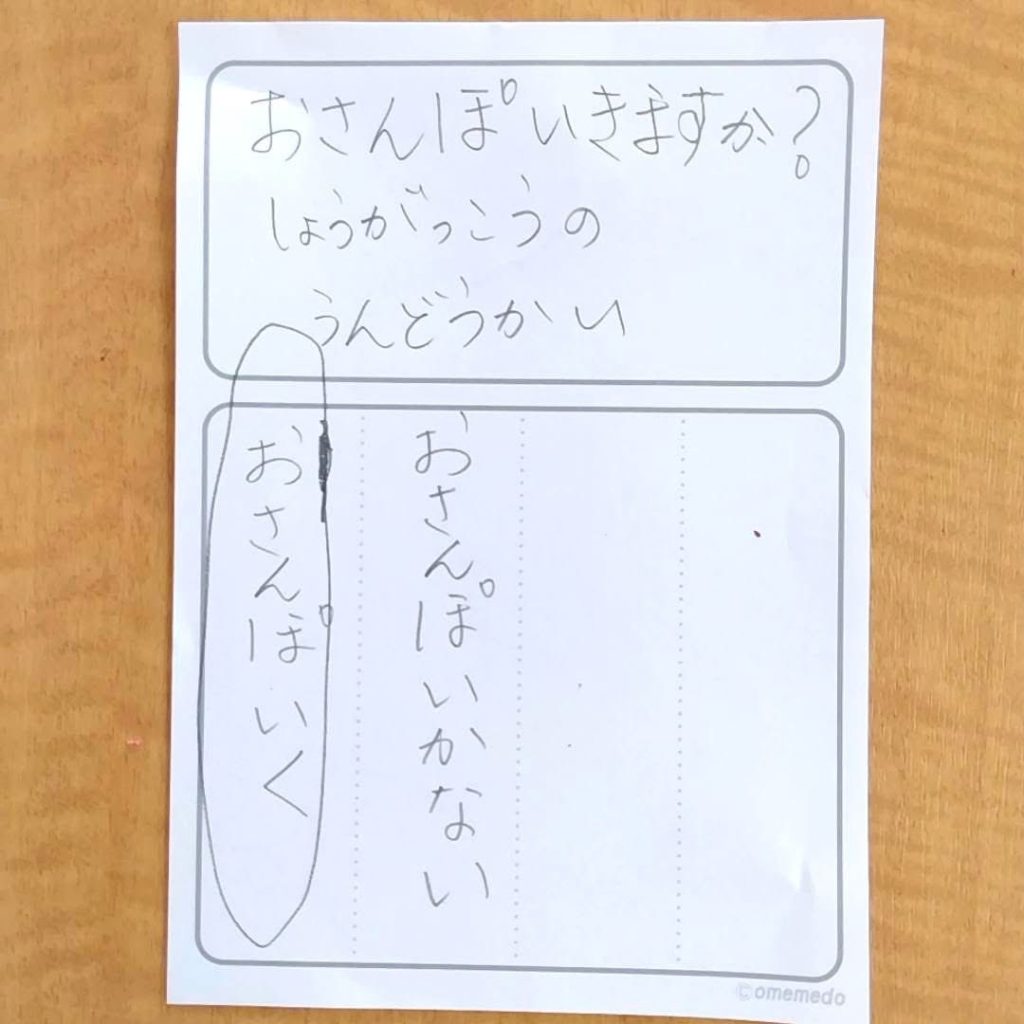 おさんぽいきますか?
しょうがっこうの
うんどうかい
おさんぽいく
おさんぽいかない
©omemedo